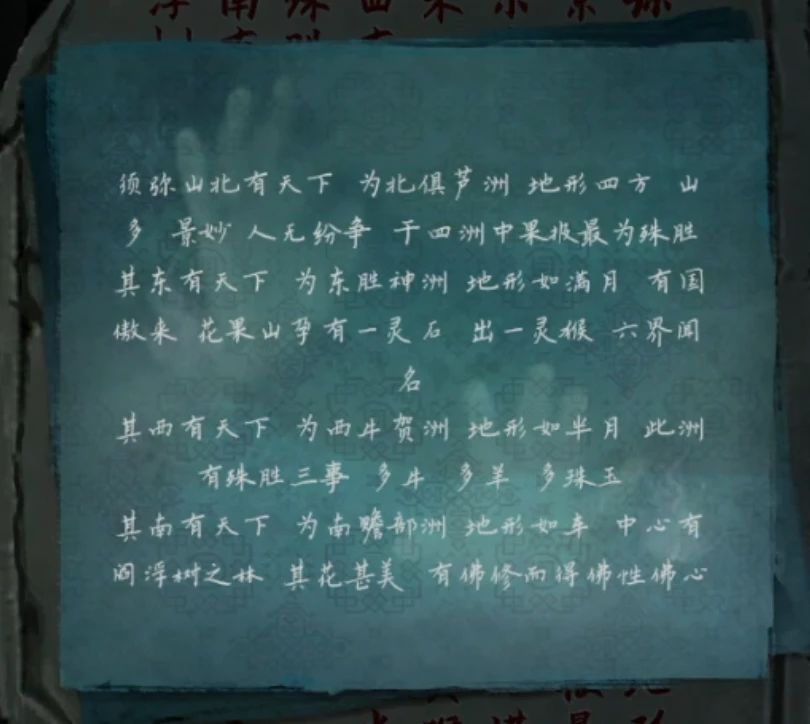 须弥山北有天下 为北俱芦洲 地形四方 山
多 景妙 人无纷争 于四洲中果报最为殊胜
其东有天下 为东胜神洲 地形如满月 有国
傲来 花果山孕有一灵石 出一灵猴 六界闻
名
其西有天下 为西牛贺洲 地形如半月 此洲
有殊胜三事 多牛 多羊 多珠玉
其南有天下 为南赡部洲 地形如车 中心有
阎浮树之林 其花甚美 有佛修而得佛性佛心